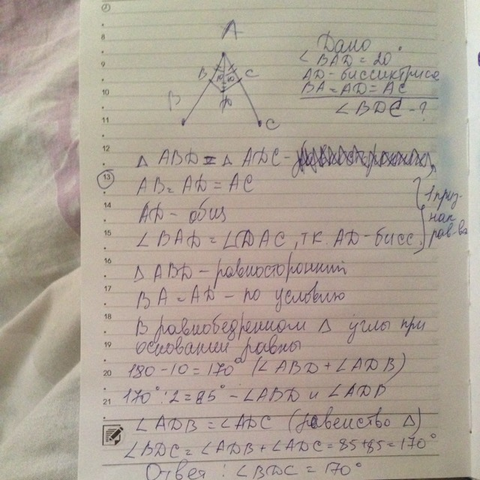 8
9
10
11
12
13
14
15
16
17
18
19
20
21
A
B C
10 10
D
B
C
Дано:
∠BAD = 20°
AD - биссиктриса
BA = AD = AC
∠BDC - ?
△ ABD = △ ADC -
AB = AD = AC
AD - общ
∠BAD = ∠DAC, т.к. AD - бисс.
1 приз-
нак
рав-ва
△ ABD - равносторонний
BA = AD - по условию
В равнобедренном △ углы при
основании равны
180 - 10 = 170° (∠ABD + ∠ADB)
170° : 2 = 85° - ∠ABD и ∠ADB
∠ADB = ∠ADC (равенство △)
∠BDC = ∠ADB + ∠ADC = 85 + 85 = 170°
Ответ: ∠BDC = 170°